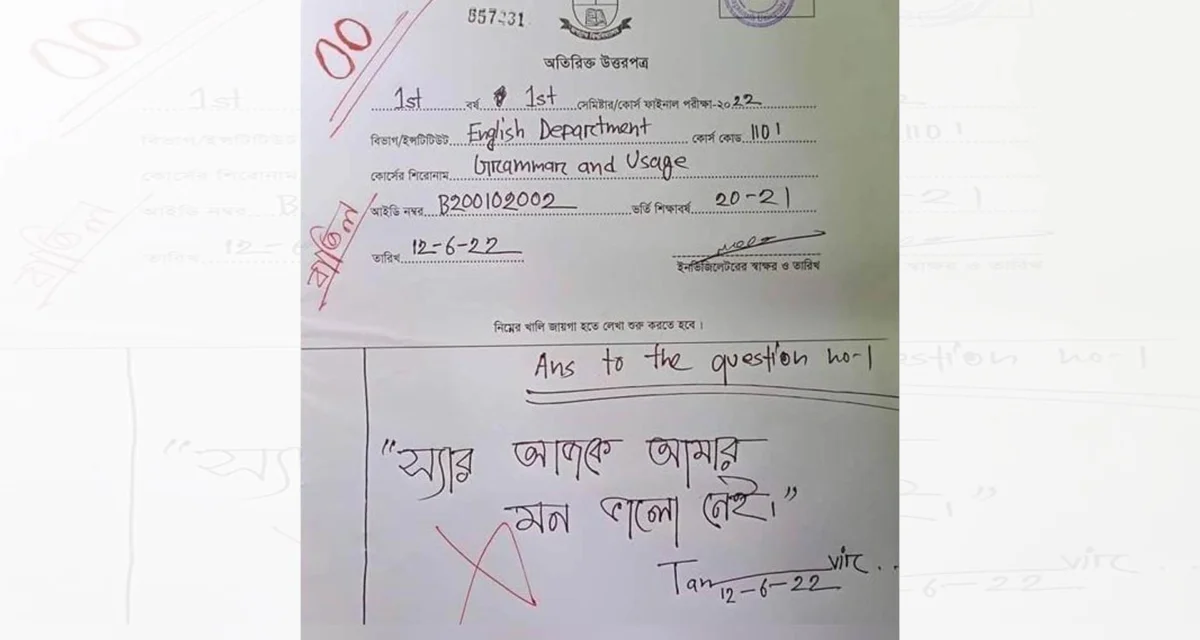 857231
জগন্নাথ বিশ্ববিদ্যালয়
00
অতিরিক্ত উত্তরপত্র
1st বর্ষ 1st সেমিষ্টার/কোর্স ফাইনাল পরীক্ষা-২০22
বিভাগ/ইন্সটিটিউট English Department কোর্স কোড 1101
কোর্সের শিরোনাম Grammar and Usage
আইডি নম্বর B200102002 ভর্তি শিক্ষাবর্ষ 20-21
তারিখ 12-6-22
ইনভিজিলেটরের স্বাক্ষর ও তারিখ
বাতিল
নিম্নের খালি জায়গা হতে লেখা শুরু করতে হবে।
Ans to the question no-1
"স্যার আজকে আমার
মন ভালো নেই।"
Tanvir
12-6-22